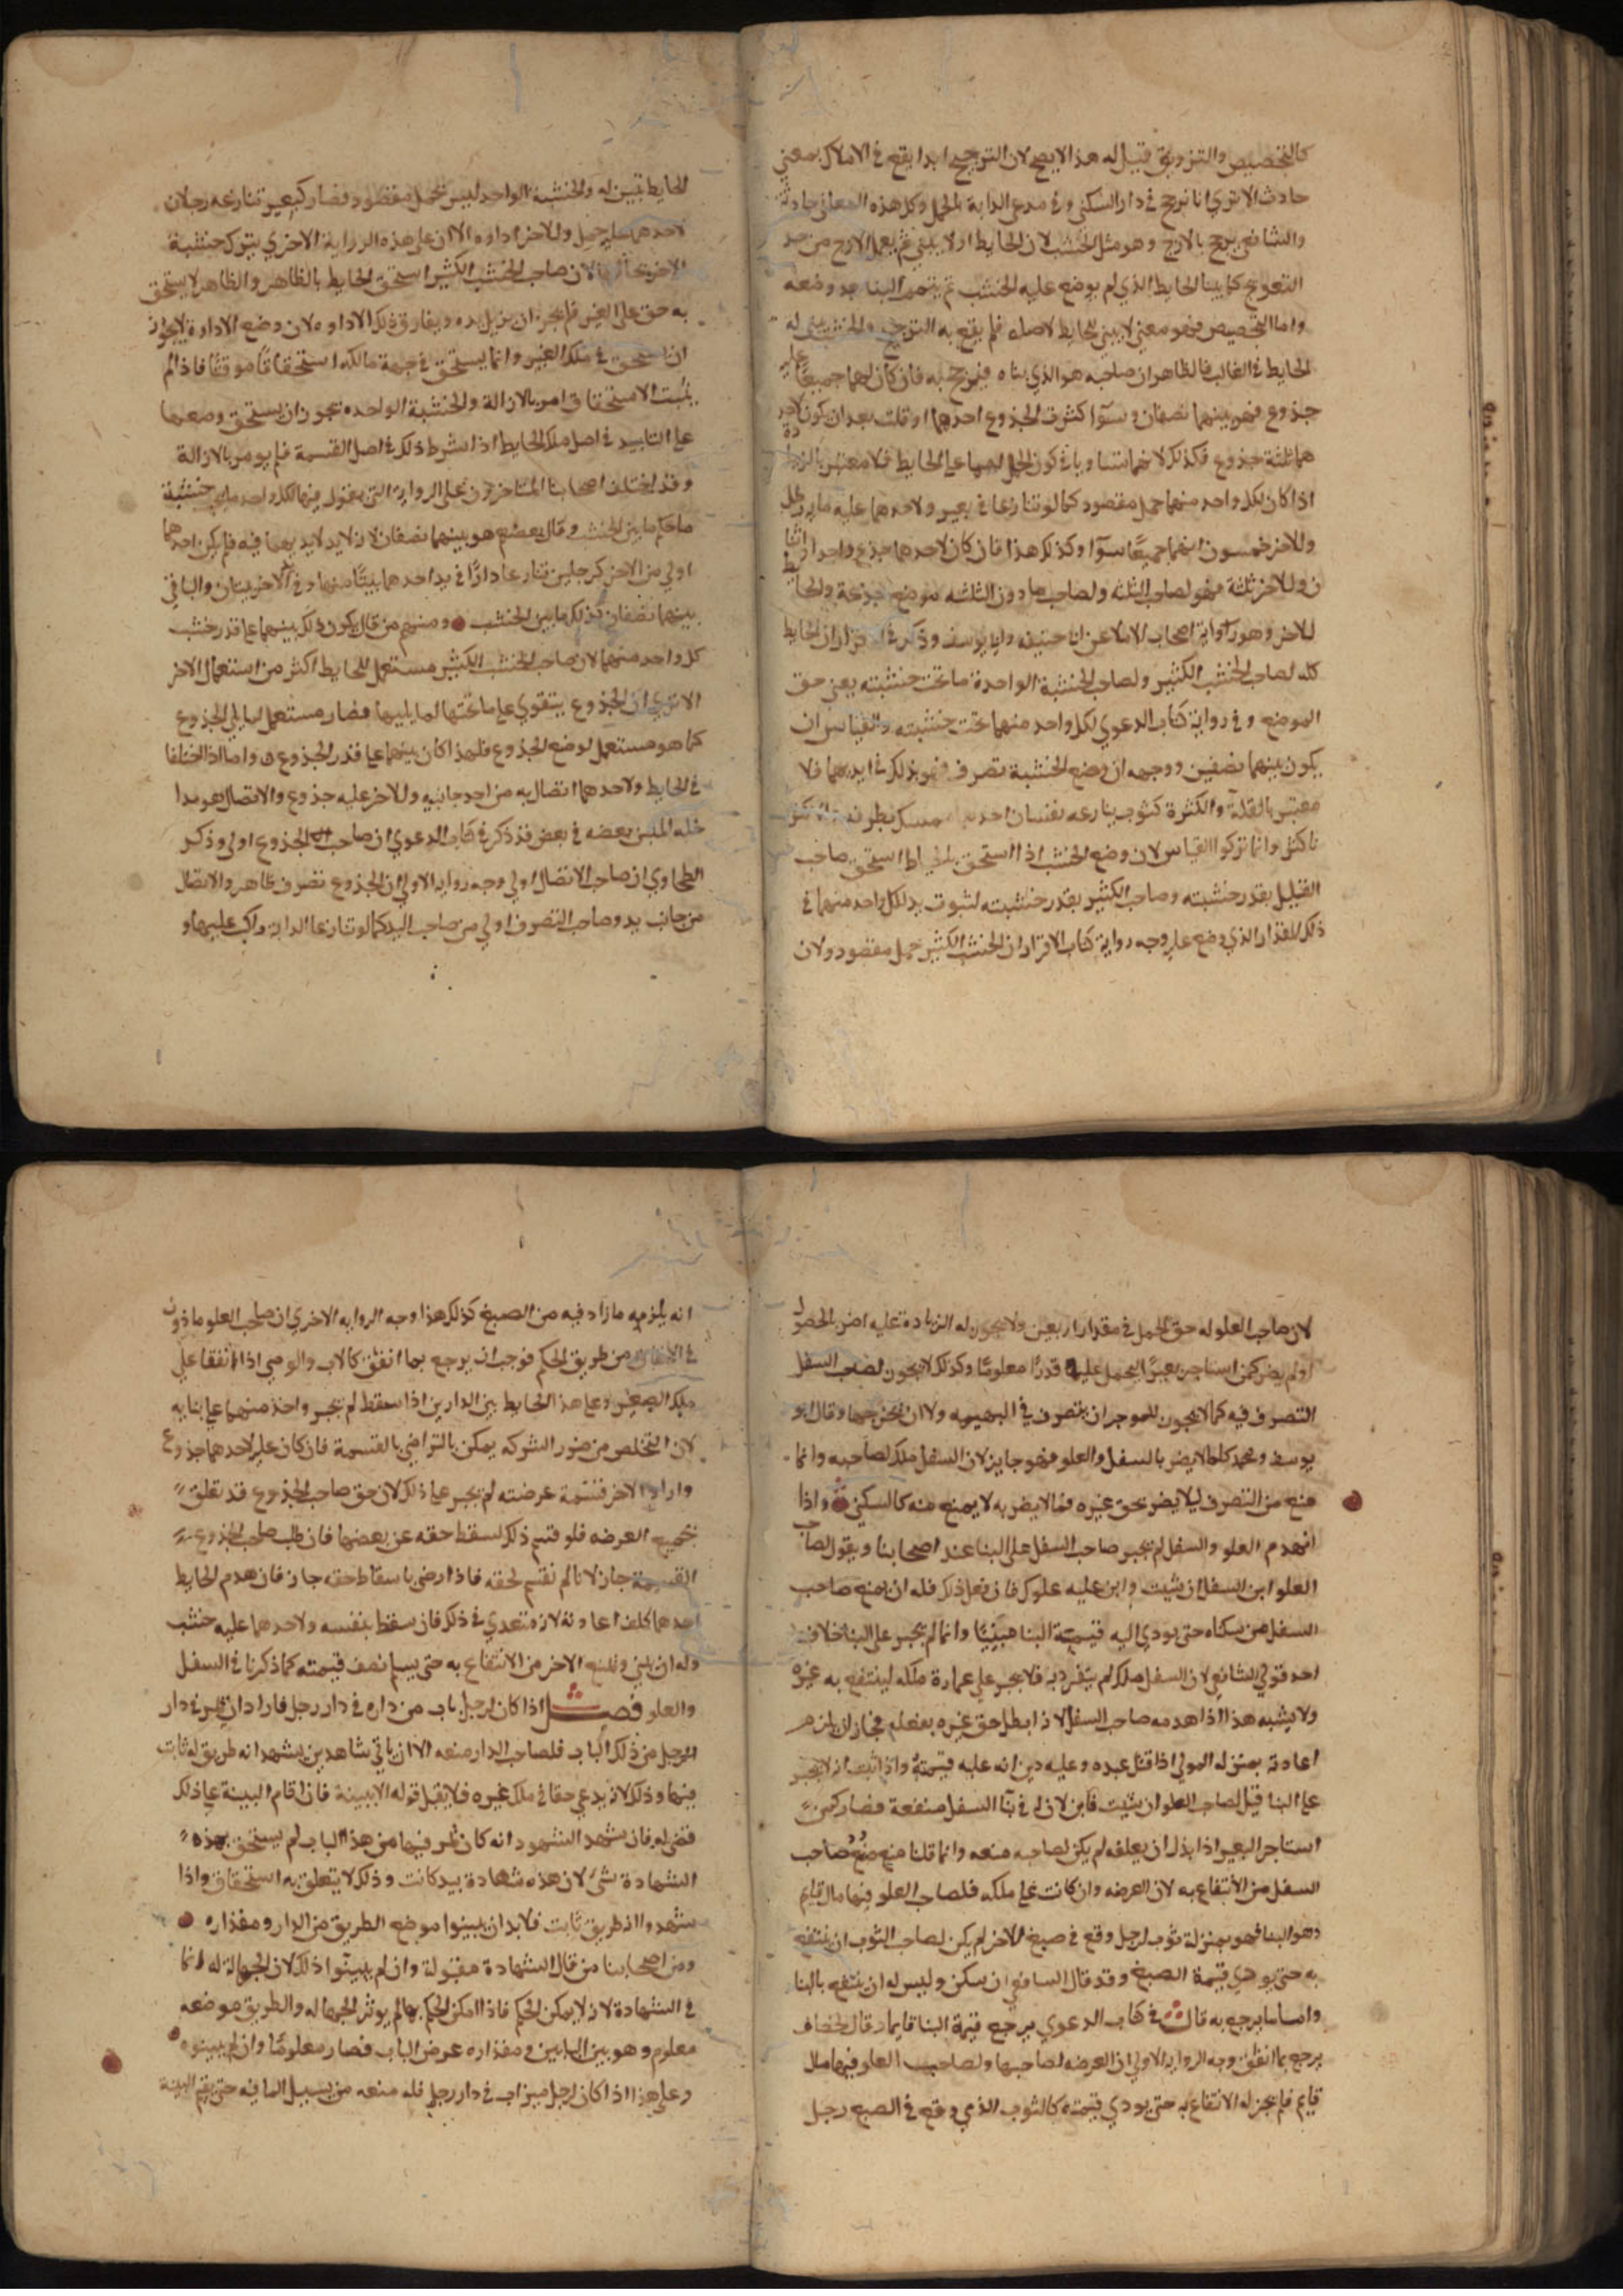 كالتخصيص والتزويق قيل له هذا لا يصح لان الترجيح ابدا يقع في الاملاك بمعني
حادث الا تري انا نرجح في دار السكني وفي مدعي الدابة بالحمل وكل هذه المعاني حادثة
والشافعي يرجح بالازج وهو مثل الخشب لان الحايط اولا يبني ثم يعمل الازج من حد
التعويج كما يبنا الحايط الذي لم يوضع عليه الخشب ثم يتمم البنا بعد وضعه
واما التخصيص فهو معني لا يبني الحايط لاصله فلم يقع به الترجيح والخشب يبني له
الحايط في الغالب فالظاهر ان صاحبه هو الذي بناه فيرجح به فان كان لهما جميعا عليه
جذوع فهو بينهما نصفان وسوآ كثرت الجذوع احدهما او قلت بعد ان يكون لاحد
هما ثلثة جذوع فكذلك لانهما تساويا في كون الحمل لهما علي الحايط فلا معتبر بالزيادة
اذا كان لكل واحد منهما حمل مقصود كما لو تنازعا في بعير ولاحدهما عليه ماية رطل
وللاخر خمسون انهما جميعا سوآ وكذلك هذا فان كان لاحدهما جذع واحد او اثنا
ن وللاخر ثلثة فهو لصاحب الثلثه ولصاحب ما دون الثلثه موضع جذعه والحايط
للاخر وهو رواية اصحاب الاملا عن ابي حنيفه وابي يوسف وذكر في الاقرار ان الحايط
كله لصاحب الخشب الكثير ولصاحب الخشبة الواحدة ما تحت خشبته يعني حق
الموضع وفي رواية كتاب الدعوي لكل واحد منهما تحت خشبته والقياس ان
يكون بينهما نصفين ووجهه ان وضع الخشبة تصرف فهو بذلك في ايديهما فلا
معتبر بالقلة والكثرة كثوب ينازعه نفسان احدهما ممسك بطرفه
باكثره وانما تركوا القياس لان وضع الخشب اذا استحق به الحايط استحق صاحب
القليل بقدر خشبته وصاحب الكثير بقدر خشبته لثبوت يد لكل واحد منهما في
ذلك المقدار الذي وضع عليه وجه رواية كتاب الاقرار ان الخشب الكثير حمل مقصود ولان
الحايط تبين له والخشبة الواحد ليس بحمل مقصود فصار كبعير تنازعه رجلان
لاحدهما عليه حمل وللاخر اداوه الا ان علي هذه الرواية الاخري يترك خشبة
الاخر بحالها لان صاحب الخشب الكثير استحق الحايط بالظاهر والظاهر لا يستحق
به حق علي الغير فلم يجز ان يزيل يده ويفارق ذلك الاداوه لان وضع الاداوة لا يجوز
ان يستحق في ملك الغير وانما يستحق في جهة مالكه استحقاقا موقتا فاذا لم
يثبت الاستحقاق امر بالازالة والخشبة الواحده يجوز ان يستحق وضعها
علي التابيد في اصل ملك الحايط اذا شرط ذلك في اصل القسمة فلم يومر بالازالة
وقد اختلف اصحابنا المتاخرون علي الرواية التي يقول فيها لكل واحد ما تحت خشبته
ما حكم ما بين الخشب وقال بعضهم هو بينهما نصفان لانه لا يد لايديهما فيه فلم يكن احدهما
اولي من الاخر كرجلين تنازعا دارا في يد احدهما بيتا منها وفي يد الاخر بيتان والباقي
بينهما نصفان كذلك ما بين الخشب ومنهم من قال يكون ذلك بينهما علي قدر خشب
كل واحد منهما لان صاحب الخشب الكثير مستعمل للحايط اكثر من استعمال الاخر
الا تري ان الجذوع يتقوي علي ما تحتها لما يليها فصار مستعمل لما يلي الجذوع
كما هو مستعمل لوضع الجذوع فلهذا كان بينهما علي قدر الجذوع واما اذا اختلفا
في الحايط ولاحدهما اتصال به من احد جانبيه وللاخر عليه جذوع والاتصال هو مدا
خله اللبن بعضه في بعض فذ ذكر في كتاب الدعوي ان صاحب الجذوع اولي وذكر
الطحاوي ان صاحب الاتصال اولي وجه رواية الاولي ان الجذوع تصرف ظاهر والاتصال
من جانب يد وصاحب التصرف اولي من صاحب اليد كما لو تنازعا الدابة راكب عليها و
لان صاحب العلو له حق الحمل في مقدار اربعين ولا يجوز له الزيادة عليه اضر بالحصول
او لم يضر كمن استاجر بعيرا ليحمل عليها قدرا معلوما وكذلك لا يجوز لصاحب السفل
التصرف فيه كما لا يجوز للموجر ان يتصرف في البهيمه ولا ان يخرجها وقال ابو
يوسف ومحمد كلما لا يضر بالسفل والعلو فهو جايز لان السفل ملك لصاحبه وانما
منع من التصرف ليلا يضر بحق غيره فما لا يضر به لا يمنع منه كالسكني واذا
انهدم العلو والسفل لم يجبر صاحب السفل علي البنا عند اصحابنا ويقول لصاحب
العلو ابن السفل ان شيت وابن عليه علوك فان فعل ذلك فله ان يمنع صاحب
السفل من سكناه حتي يودي اليه قيمة البنا مبنيا وانما لم يجبر علي البنا خلاف
احد قولي الشافعي لان السفل ملك لم ينفرد به فلا يجبر علي عمارة ملكه لينتفع به غيره
ولا يشبه هذا اذا هدمه صاحب السفل لانه ابطل حق غيره بفعله فجاز ان يلزم
اعادته بمنزله المولي اذا قتل عبده وعليه دين انه عليه قيمتة واذا ثبت انه لا يجبر
علي البنا قيل لصاحب العلو ان شيت فابن لان له في بنا السفل منفعة فصار كمن
استاجر البعير اذا بذل ان يعلفه لم يكن لصاحبه منعه وانما قلنا منع صاحب
السفل من الانتفاع به لان العرضه وان كانت علي ملكه فلصاحب العلو فيها مال قايم
وهو البنا فهو بمنزلة ثوب لرجل وقع في صبغ الاخر لم يكن لصاحب الثوب ان ينتفع
به حتي يودي قيمة الصبغ وقد قال الشافعي ان يسكن وليس له ان ينتفع بالبنا
واما ما يرجع به قال في كتاب الدعوي يرجع قيمة البنا قايما وقال الخصاف
يرجع بما انفق وجه الرواية الاولي ان العرضه لصاحبها ولصاحب العلو فيها مال
قايم فلم يجز له الانتفاع به حتي يودي قيمته كالثوب الذي وقع في الصبغ رجل
انه يلزمه ما زاد فيه من الصبغ كذلك هذا وجه الروايه الاخري ان صاحب العلو ماذون
في الانفاق من طريق الحكم فوجب ان يرجع بما انفق كالاب والوصي اذا انفقا علي
ملك الصغير وعلي هذا الحايط بين الدارين اذا سقط لم يجبر واحد منهما علي بنايه
لان التخلص من ضرر الشركه يمكن بالتراضي بالقسمة فان كان عليه لاحدهما جذوع
واراد الاخر قسمة عرضته لم يجبر علي ذلك لان حق صاحب الجذوع قد تعلق
بجميع العرضه فلو قسم ذلك لسقط حقه عن بعضها فان طلب صاحب الجذوع
القسمة جاز لانا لم نقسم لحقه فاذا رضي باسقاط حقه جاز فان هدم الحايط
احدهما كلف اعادته لانه متعدي في ذلك فان سقط بنفسه ولاحدهما عليه خشب
وله ان يبني ويمنع الاخر من الانتفاع به حتي يسلم نصف قيمته كما ذكرنا في السفل
والعلو فصل اذا كان لرجل باب من داره في دار رجل فاراد ان يمر في دار
الرجل من ذلك الباب فلصاحب الدار منعه الا ان ياتي شاهدين يشهد انه طريق له ثابت
فيها وذلك لانه يدعي حقا في ملك غيره فلا يقبل قوله الا ببينة فان اقام البينة علي ذلك
قضي له فان شهد الشهود انه كان يمر فيها من هذا الباب لم يستحق بهذه
الشهادة شي لان هذه شهادة بيد كانت وذلك لا يتعلق به استحقاق واذا
شهدوا انه طريق ثابت فلا بد ان يبينوا موضع الطريق من الدار ومقداره
ومن اصحابنا من قال الشهادة مقبولة وان لم يبينوا ذلك لان الجهالة له انما
في الشهادة لانه لا يمكن الحكم فاذا امكن الحكم بها لم يوثر الجهاله والطريق موضعه
معلوم وهو بين البابين ومقداره عرض الباب فصار معلوما وان لم يبينوه
وعلي هذا اذا كان لرجل ميزاب في دار رجل فله منعه من تسييل الما فيه حتي يقيم البينة